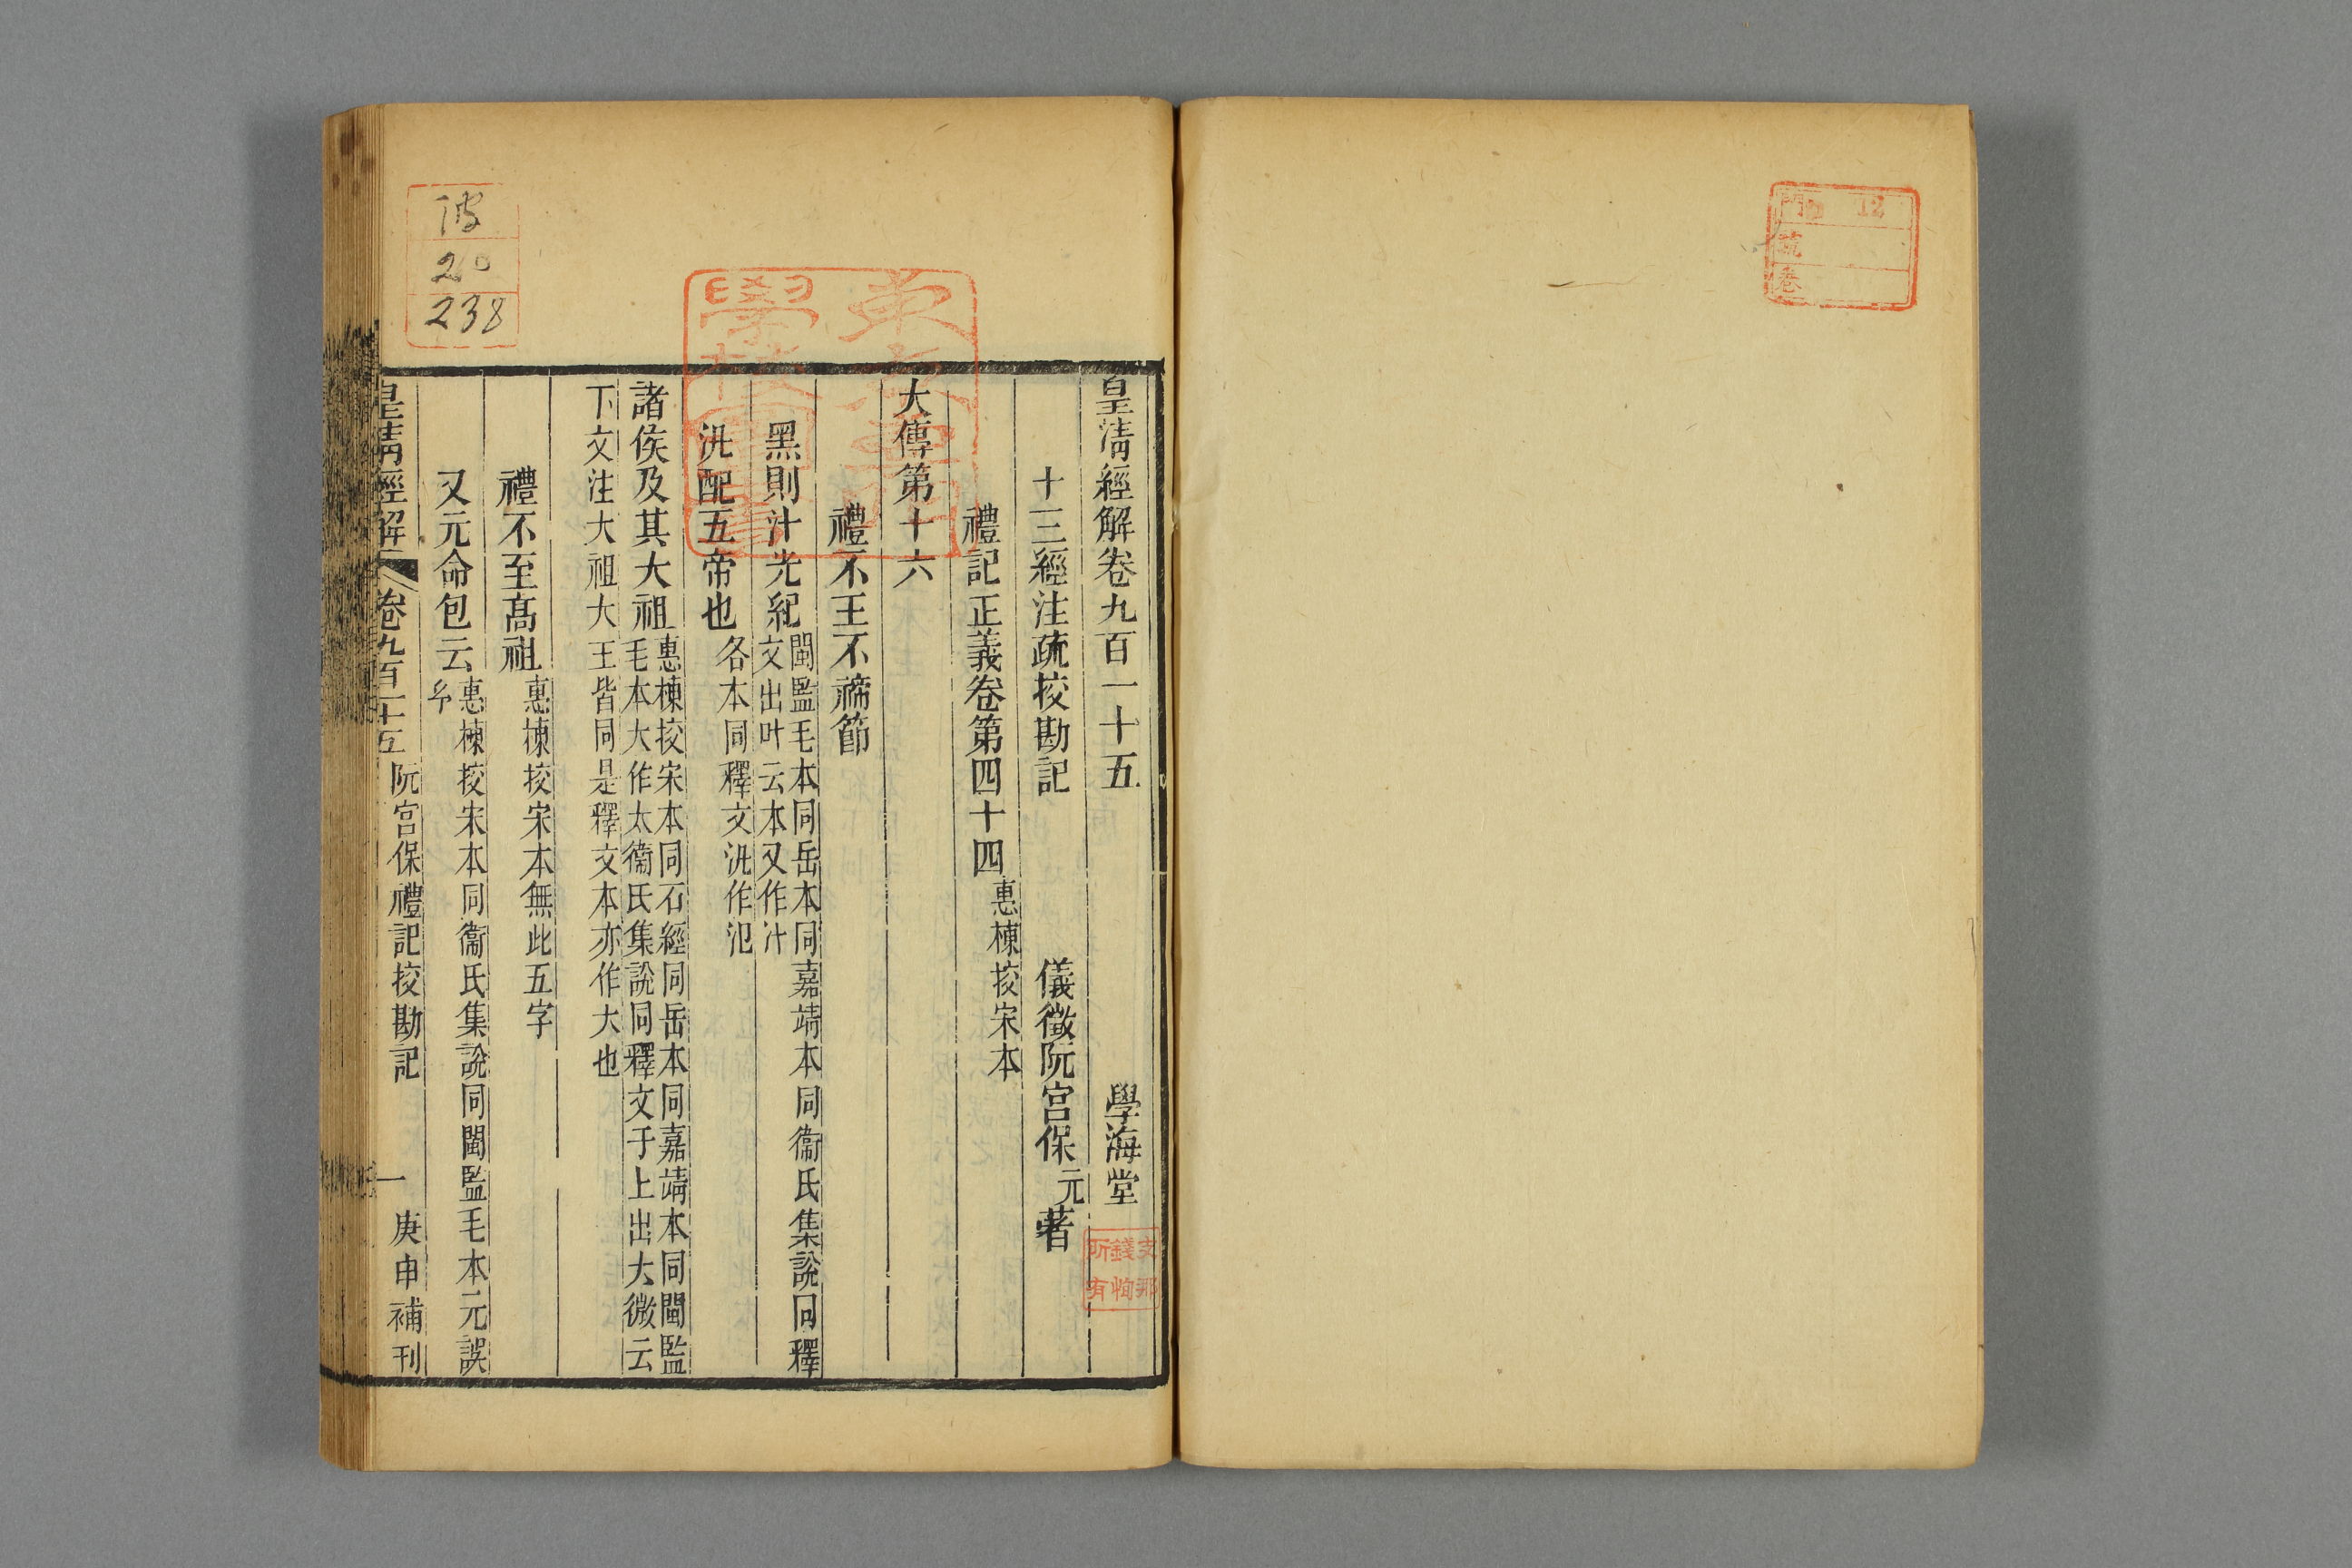 皇清經解卷九百一十五
學海堂
十三經注疏挍勘記
儀徵阮宮保元著
禮記正義卷第四十四惠棟挍宋本
大傳第十六
禮不王不禘節
黑則汁光紀閩監毛本同岳本同嘉靖本同衞氏集說同釋
文出叶云本又作汁
汎配五帝也各本同釋文汎作氾
諸侯及其大祖惠棟挍宋本同石經同岳本同嘉靖本同閩監
毛本大作太衞氏集說同釋文于上出大微云
下文注大祖大王皆同是釋文本亦作大也
禮不至高祖惠棟挍宋本無此五字
又元命包云惠棟挍宋本同衞氏集說同閩監毛本元誤
皇清經解
卷九百一十五
阮宮保禮記挍勘記
一
庚申補刊
20
238
支那
錢恂
所有
門
12
號
卷